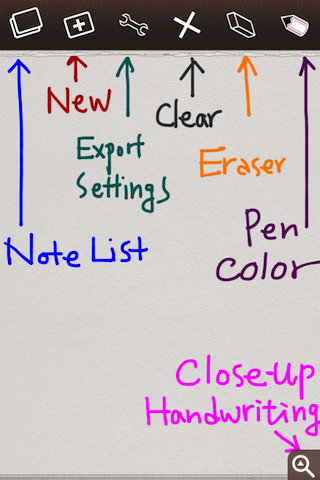 New
Clear
Export
Settings
Eraser
Note List
Pen
Color
Close-Up
Handwriting